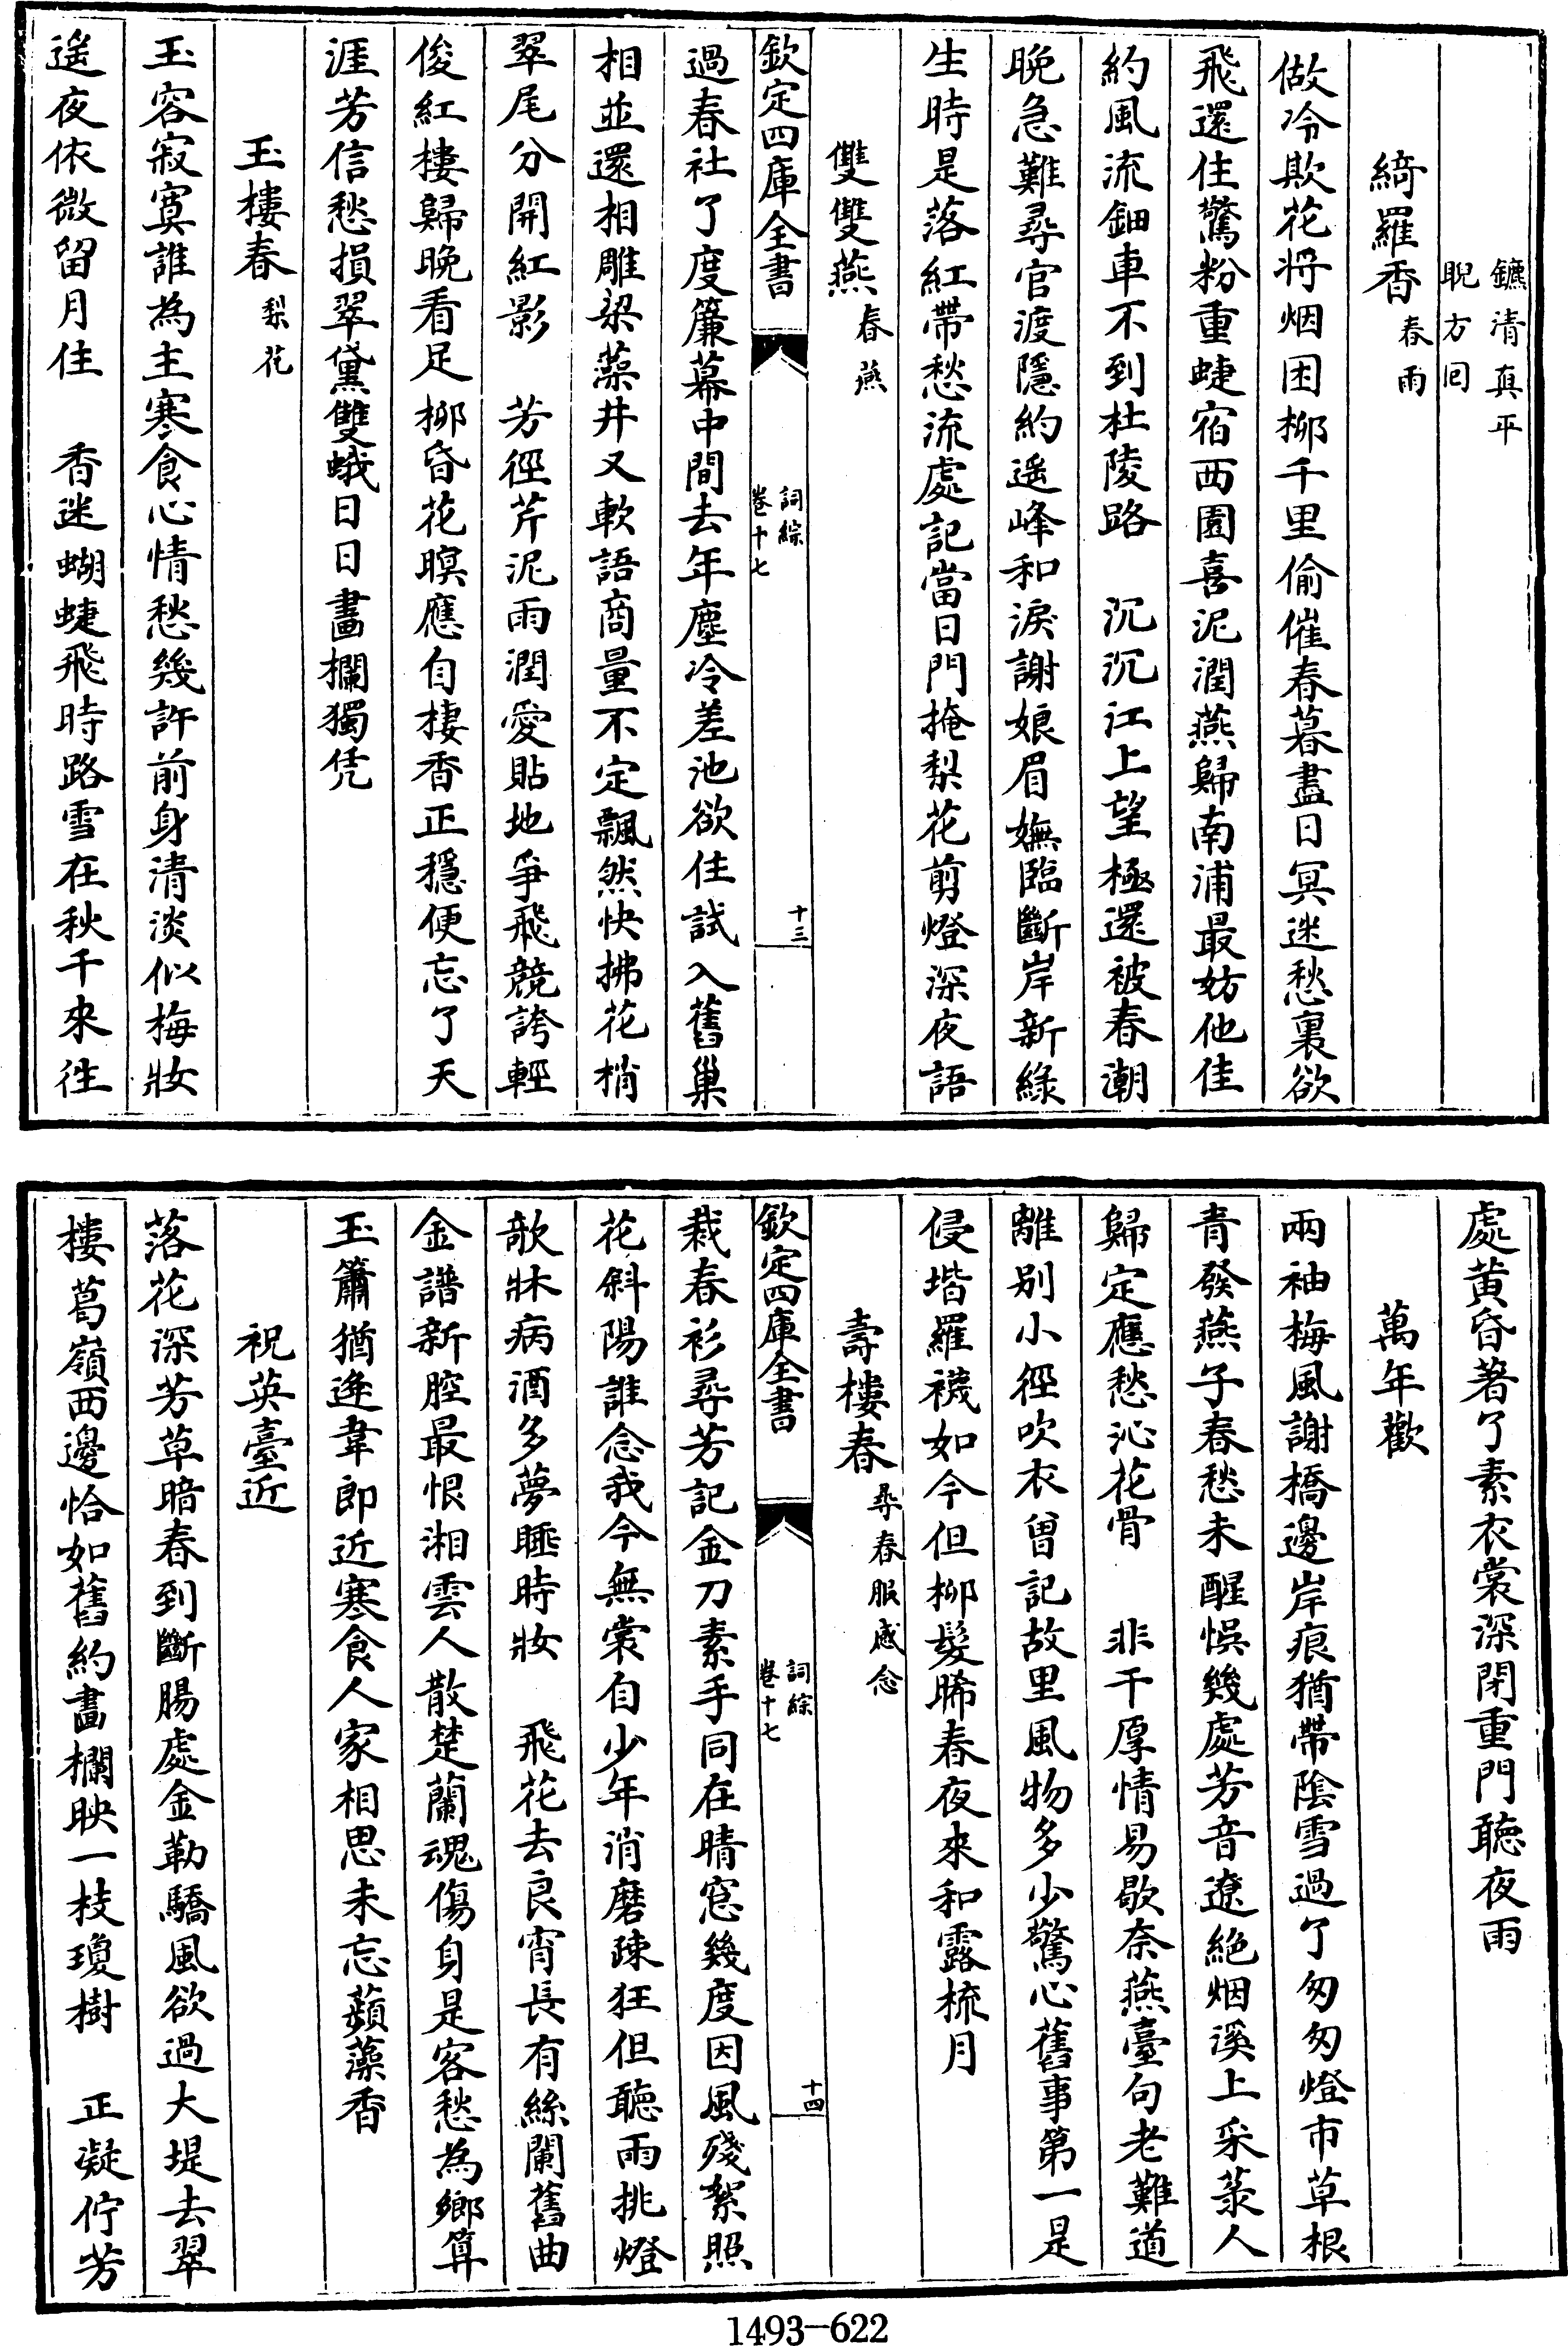 鑣清真平
睨方回
綺羅香春雨
做冷欺花将烟困柳千里偷催春暮盡日冥迷愁裏欲
飛還住驚粉重蜨宿西園喜泥潤燕歸南浦最妨他佳
約風流鈿車不到杜陵路　沉沉江上望極還被春潮
晚急難尋官渡隱約遥峰和淚謝娘眉嫵臨斷岸新綠
生時是落紅帶愁流處記當日門掩梨花剪燈深夜語
雙雙燕春燕
欽定四庫全書
詞綜
卷十七
十三
過春社了度簾幕中間去年塵冷差池欲住試入舊巢
相並還相雕梁藻井又軟語商量不定飄然快拂花梢
翠尾分開紅影　芳徑芹泥雨潤愛貼地爭飛競誇輕
俊紅樓歸晚看足柳昏花暝應自棲香正穩便忘了天
涯芳信愁損翠黛雙蛾日日畫欄獨凭
玉樓春梨花
玉容寂寞誰為主寒食心情愁幾許前身清淡似梅妝
遙夜依微留月住　香迷蝴蜨飛時路雪在秋千來往
處黄昏著了素衣裳深閉重門聽夜雨
萬年歡
兩袖梅風謝橋邊岸痕猶帶陰雪過了匆匆燈市草根
青發燕子春愁未醒悞幾處芳音遼絕烟溪上采菉人
歸定應愁沁花骨　非干厚情易歇奈燕臺句老難道
離别小徑吹衣曾記故里風物多少驚心舊事第一是
侵堦羅襪如今但柳髮晞春夜來和露梳月
壽樓春尋春服感念
欽定四庫全書
詞綜
卷十七
十四
裁春衫尋芳記金刀素手同在晴窓幾度因風殘絮照
花斜陽誰念我今無裳自少年消磨疎狂但聽雨挑燈
欹牀病酒多夢睡時妝　飛花去良宵長有絲闌舊曲
金譜新腔最恨湘雲人散楚蘭魂傷身是客愁為鄉算
玉簫猶逢韋郎近寒食人家相思未忘蘋藻香
祝英臺近
落花深芳草暗春到斷腸處金勒驕風欲過大堤去翠
樓葛嶺西邊恰如舊約畫欄映一枝瓊樹　正凝佇芳
1493-622